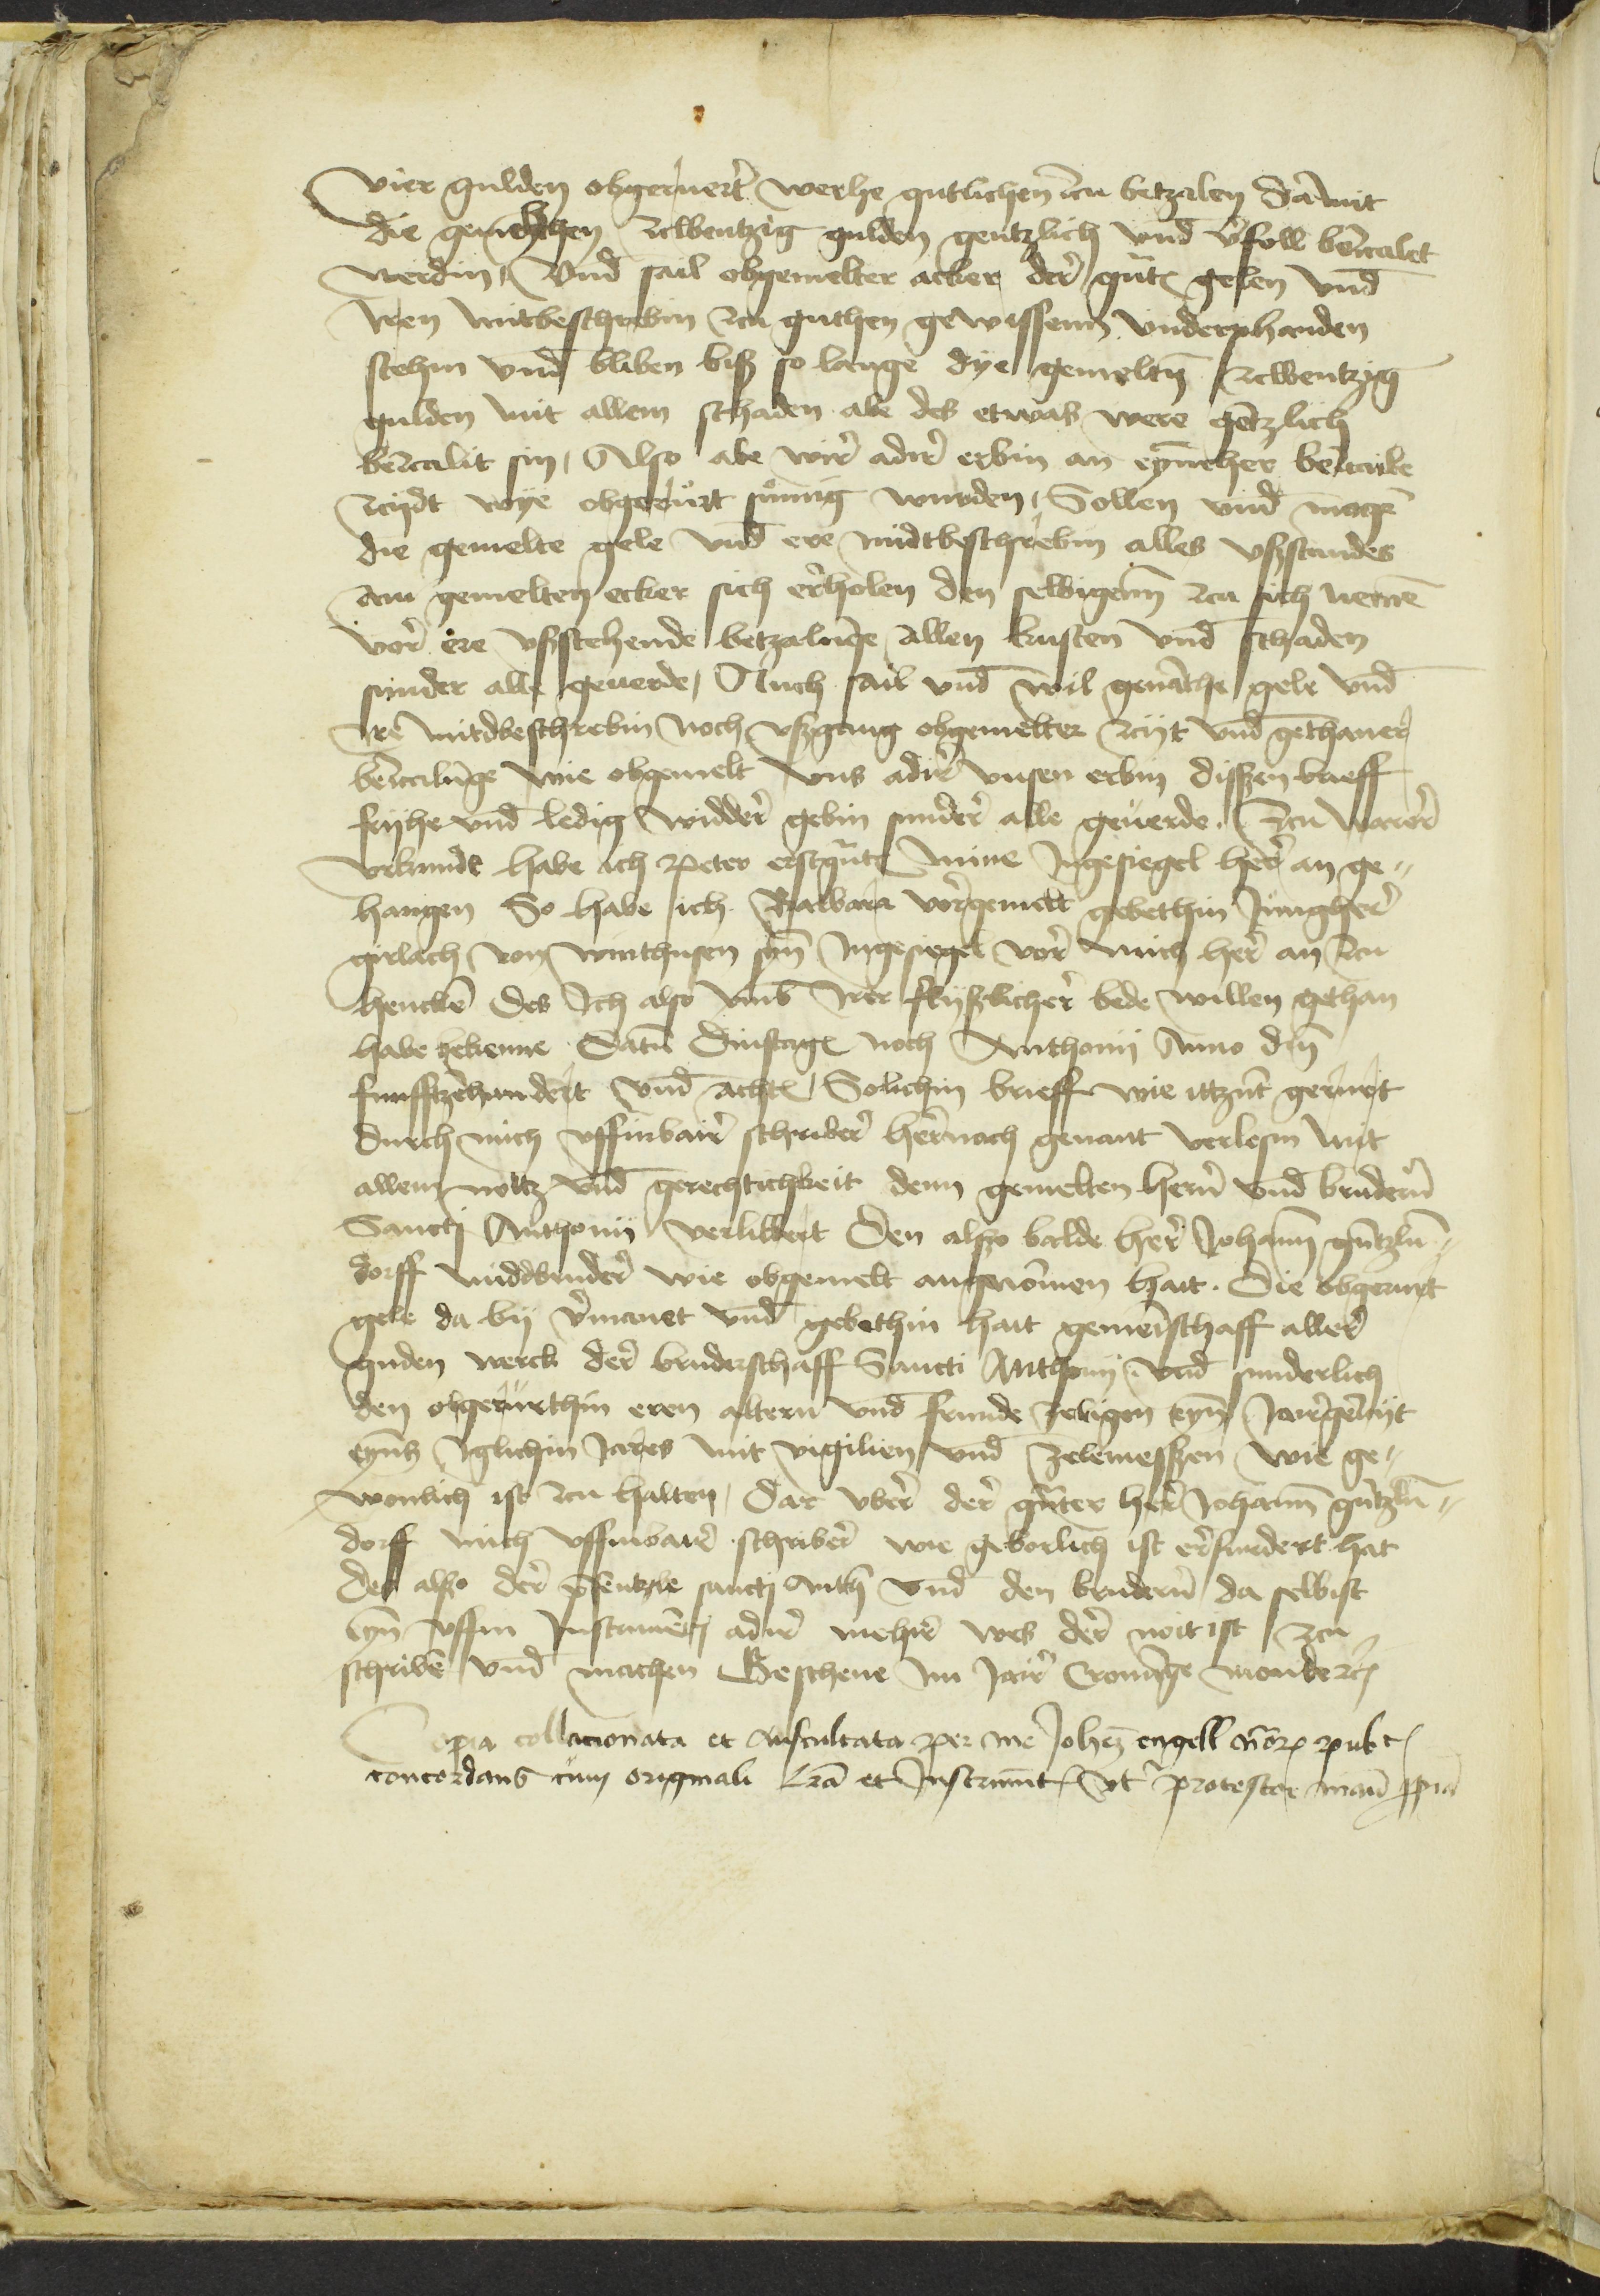 vier gulden obgeruert werhe gutlichen zcu betzalen da mit
die gemelthen zcwentzig gulden gentzlich vnd v̉foll bezcalet
werdin / Vnd sail obgemelter acker der gn̄t gelen vnd
iren mitbeschrebin zcu guthen gewissenn vnderphanden
stehin vnd bliben biß so lange dye gemeltn̄ zcwentzig
gulden mit allem schaden abe des etwas were gētzlich
bezcalit sin / Also abe wir adir erbin an eyncher bezcale
zcijdt wye obgerůrt sůmig wurden / Sollen vnd mogē
die gemelte gele vnd ere midtbeschrebin alles vßstandes
am gemelten ecker sich erholen den selbigenn zcu sich nemē
vor ere vßstehende betzalūge allen kusten vnd schaden
sunder alle geuerde / Auch sail vnd wil genāthe gele vnd
ire mitdbeschrebin noch vßgang obgemelter zcijt vnd gethaner
bezcalūge wie obgemelt vns adir vnsen erbin dissen brieff
frijhe vnd ledig widder gebin sunder alle geuerde. Zcu warer
vrkunde habe ich Peter erstgn̄te mine Ingesiegel her an ge-
hangen So habe ich Barbara vorgemelt gebethin Jungher
girlach von winthusen syn̄ Ingesiegel vor mich her an zcu
henckē Des Ich also vmb irer flijßlicher bede willen gethan
habe bekenne Datū Dinstage noch Anthonij Anno dn̄j
funfftzehundert vnd acht / Solichin brieff wie ittzūt gerurt
durch mich vffinbair schriber hernach genant verlesin mit
allem nottz vnd gerechtichkeit denn gemelten hern̄ vnd brudern̄
Sancti Anthonij verlibbert Den also balde her Johann gūtzlū-
dorff middbruder wie obgemelt angenōmen hait. Die obgerurt
gele da bij v̉manet vnd gebethin hait gemeīschaff aller
guden werck der bruderschaff Sancti Anthonij vnd sunderlich
den obgerůrthin eren altern vnd frunde zeligen eyn̄ Jargezcijt
eyns iglichin Jares mit vigilien vnd zelemessen wie ge-
wonlich ist zcu halten / Dar vber der gn̄ter her Johann gūtzlū-
dorff mich vffinbair schriber wie geborlich ist erfurdert hat
Des also der p̄sentzie sancti Anth vnd den brudern̄ da selbist
eyn̄ vffin Instrumēt adir mehir wes der noit ist zcu
schribē vnd machen Geschene im Jair Cronūge monde zc
Copia collacionata et Auscultata per me Johez engell n̄orē publ
concordans cum originali lr̄a et Instrumēt vt protestor manu ppria